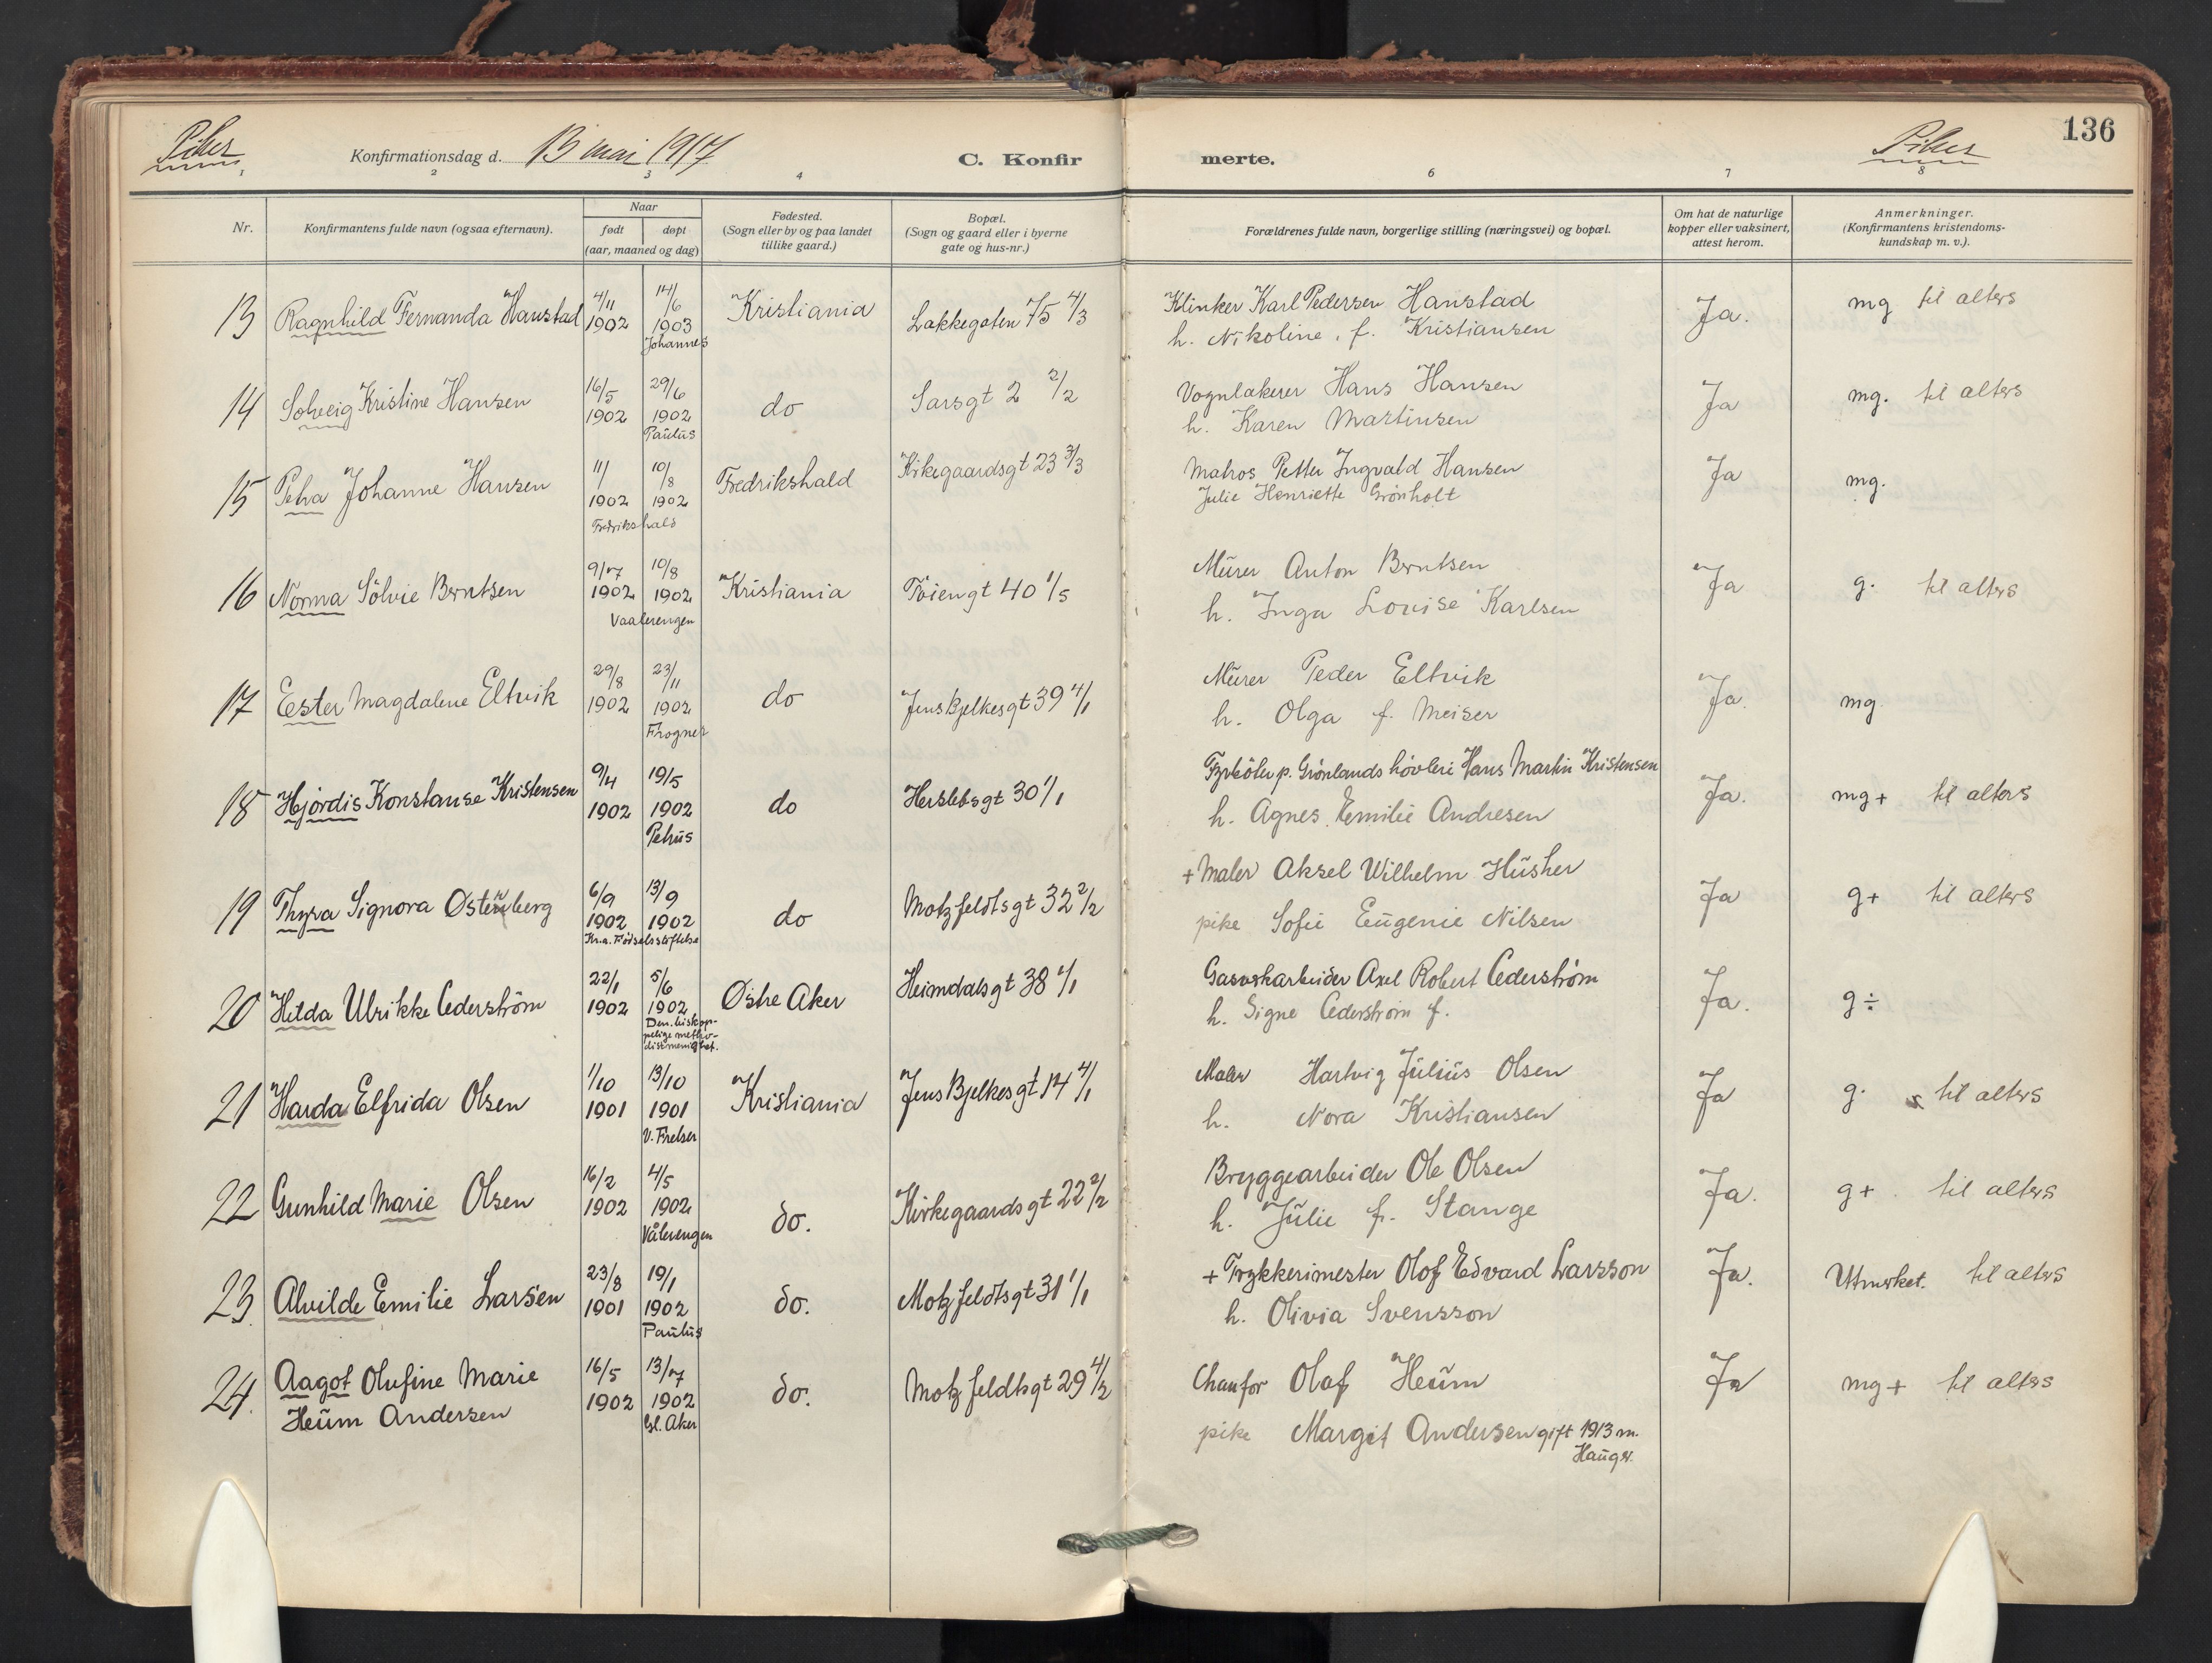 Piker
Konfirmationsdag d. 13 mai 1917
C. Konfir
merte.
Piker
136
1 2 3 4 6 7 8
Nr.
Konfirmantens fulde navn (ogsaa efternavn).
Naar
født
døpt
(aar, maaned og dag)
Fødested.
(Sogn eller by og paa landet
tillike gaard.)
Bopæl.
(Sogn og gaard eller i byerne
gate og hus-nr.)
Forældrenes fulde navn, borgerlige stilling (næringsvei) og bopæl.
Om hat de naturlige
kopper eller vaksinert,
attest herom.
Anmerkninger.
(Konfirmantens kristendoms-
kundskap m. v.).
13 Ragnhild Fernanda Hanstad 4/11 1902 14/6 1903 Johannes Kristiania Lakkegaten 75 4/3 Klinker Karl Pedersen Hanstad Ja. mg til alters
h. Nikoline, f. Kristiansen
14 Solveig Kristine Hansen 16/5 1902 29/6 1902 Paulus do Sarsgt 2 2/2 Vognlakerer Hans Hansen Ja mg. til alters
h. Karen Martinsen
15 Petra Johanne Hansen 11/ 1902 10/8 1902 Fredrikshald Fredrikshald Kirkegaardsgt 23 3/3 Matros Petter Ingvald Hansen Ja mg.
Julie Henriette Grönholt
16 Norma Sölvie Berntsen 9/7 1902 10/8 1902 Vaalerengen Kristiania Töiengt 40 1/5 Murer Anton Berntsen Ja g. til alters
h. Inga Louise Karlsen
17 Ester Magdalene Eltvik 29/8 1902 23/11 1902 Frogner do Jens Bjelkesgt 39 4/1 Murer Peder Eltvik Ja. mg
h. Olga f. Meiser
18 Hjördis Konstanse Kristensen 9/4 1902 19/5 1902 Petrus do Herslebsgt 30 1/1 Fyrböter p. Grönlands hövleri Hans Martin Kristensen Ja. mg+ til alters
h. Agnes Emilie Andresen
19 Thyra Signora Østenberg 6/9 1902 13/9 1902 Kr.a. Fødselsstiftelse do Motzfeldtsgt 32 2/2 + Maler Aksel Wilhelm Hüsher Ja g+ til alters
pike Sofie Eugenie Nilsen
20 Hilda Ulrikke Cederström 22/1 1902 5/6 1902 Den biskop-
pelige metho-
distmenighet. Østre Aker Heimdalsgt 38 4/1 Gasverkarbeider Axel Robert Cederström Ja. g÷
h. Signe Cederström f.
21 Harda Elfrida Olsen 1/10 1901 13/10 1901 V. Frelser Kristiania Jens Bjelkesgt 14 4/1 Maler Hartvig Julius Olsen Ja g. til alters
h. Nora Kristiansen
22 Gunhild Marie Olsen 16/2 1902 4/5 1902 Vålerengen do. Kirkegaardsgt 22 2/2 Bryggearbeider Ole Olsen Ja. g+. til alters
h. Julie f. Stange
23. Alvilde Emilie Larsen 23/8 1901 19/1 1902 Paulus do. Motzfeldtsgt 31 1/1 + Trykkerimester Olof Edvard Larsson Ja. Utmerket. til alters
h. Olivia Svensson
24. Aagot Olufine Marie 16/5 1902 13/7 1902 Gl. Aker do. Motzfeldtsgt 29 4/2 Chaufør Olaf Heum Ja mg+ til alters
Heum Andersen
pike Margit Andersen gift 1913 m.
Hauger.